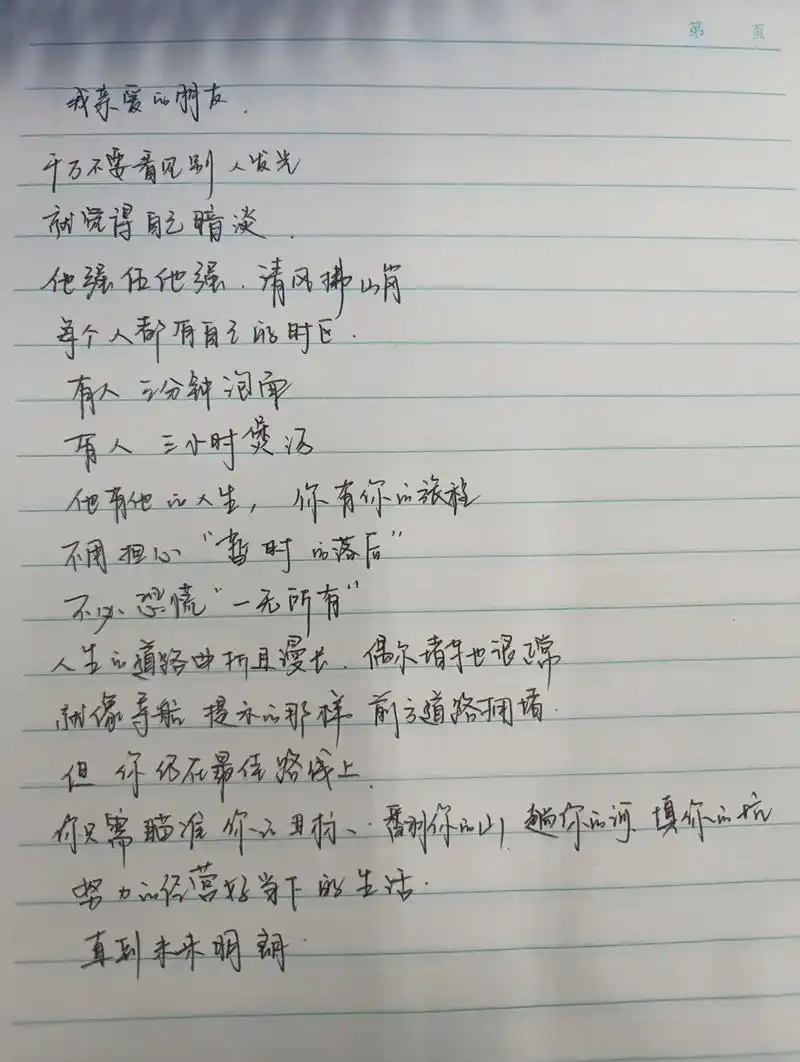 第 页
我亲爱的朋友.
千万不要看见别人发光
就觉得自己暗淡.
他强任他强.清风拂山岗
每个人都有自己的时区.
有人 三分钟泡面
有人 三小时煲汤
他有他的人生, 你有你的旅程
不用担心“暂时的落后”
不必恐慌“一无所有”
人生的道路曲折且漫长.偶尔堵车也很正常
就像导航 提示的那样 前方道路拥堵.
但 你仍在最佳路线上.
你只需瞄准你的目标、翻你的山,趟你的河.填你的坑
努力的经营好当下的生活.
直到未来明朗.